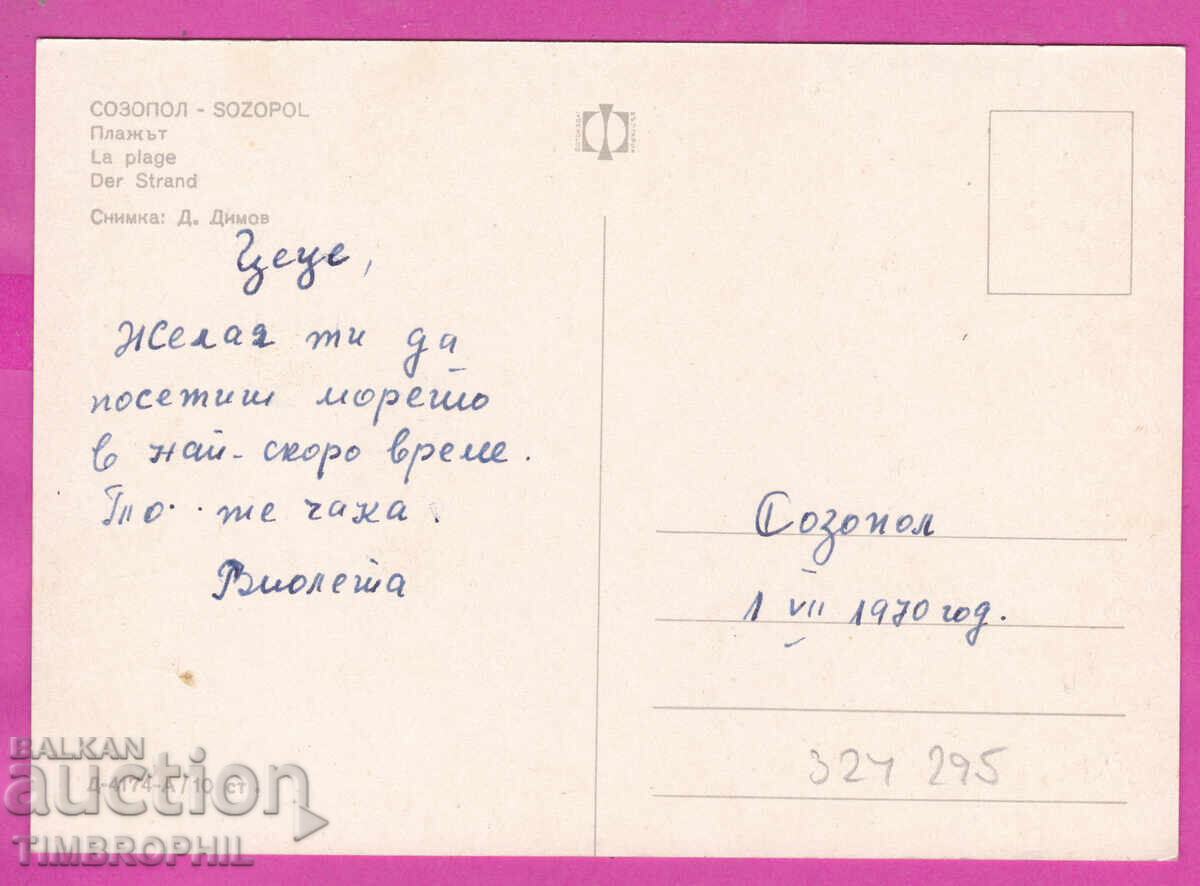 СОЗОПОЛ - SOZOPOL
Плажът
La plage
Der Strand
Снимка: Д. Димов
Цеце,
Желая ти да
посетиш морето
в най-скоро време.
То .. же чака.
Виолета
Созопол
1 VII 1970 год.
324 295
Д-4174-А/10 ст.
BALKAN
auction
TIMBROPHIL